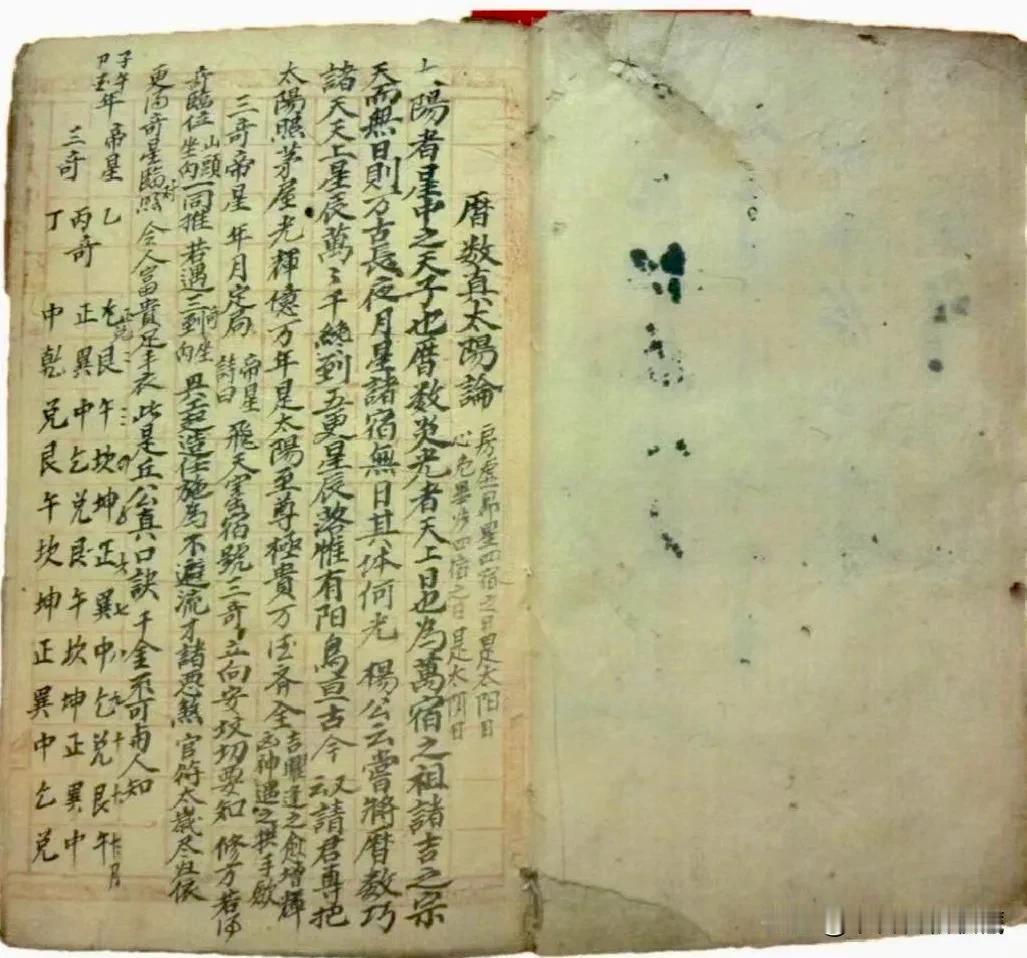 曆数真太陽論
房虚昴星四宿之日是太阳日
心危畢张四宿之日是太阴日
太陽者星中之天子也曆数炎光者天上日也為萬宿之祖諸吉之宗
天而無日則万古長夜月星諸宿無日其体何光 楊公云嘗將曆数巧
諸天天上星辰萬〻千纔到五更星辰落惟有阳烏亘古今 又云請君專把
太陽照茅屋光輝億万年是太陽至尊極貴万法斉全
吉曜逢之愈增輝
凶神遇之拱手歇
三奇帝星 年月定局
帝星
詩曰
飛天寔宿號三奇立向安坟切要知 修方若得
奇臨位
山頭
坐向
一同推 若遇三奇到
坐
向
興工造作任施為不避流才諸悪煞 官符太歲尽皈依
更得奇星臨照 令人富貴足丰衣 此是丘公真口訣 千金不可与人知
子午年 帝星 乙
艮 午 坎 坤 正 巽 中 乞 兑 艮 午
三奇 丙奇 正 巽 中 乞 兑 艮 午 坎 坤 正 巽 中
丁 中 乾 兑 艮 午 坎 坤 正 巽 中 乞 兑